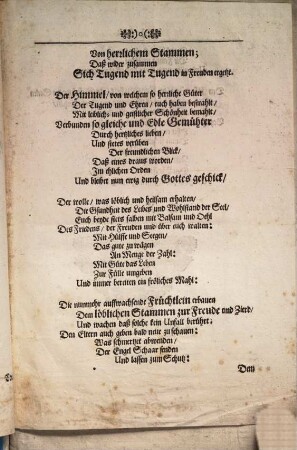 Von herrlichem Stammen;
Daß wider zusammen
Sich Tugend mit Tugend in Freuden ergetzt.
Der Himmel/ von welchem so herrliche Güter
Der Tugend und Ehren/ euch haben bestrahlt/
Mit leiblich- und geistlicher Schönheit bemahlt/
Verbunden so gleiche und Edle Gemühter
Durch hertzliches lieben/
Und stetes verüben
Der freundlichen Blick/
Daß eines draus worden/
Im ehlichen Orden
Und bleibet nun ewig durch Gottes geschick/
Der wolle/ was löblich und heilsam erhalten/
Die Gsundheit des Leibes und Wohlstand der Seel/
Euch beyde stets salben mit Balsam und Oehl
Des Friedens/ der Freuden und über euch walten:
Mit Hülffe und Sorgen/
Das gute zu wägen
An Menge der Zahl:
Mit Güte das Leben
Zur Fülle umgeben
Und immer bereiten ein fröliches Mahl:
Die nunmehr auffwachsende Früchtlein erbauen
Dem löblichen Stammen zur Freude und Zierd/
Und wachen daß solche kein Unfall berührt;
Den Eltern auch geben bald neue zu schauen:
Was schmertzet abwenden/
Der Engel Schaar senden
Und lassen zum Schutz:
Den